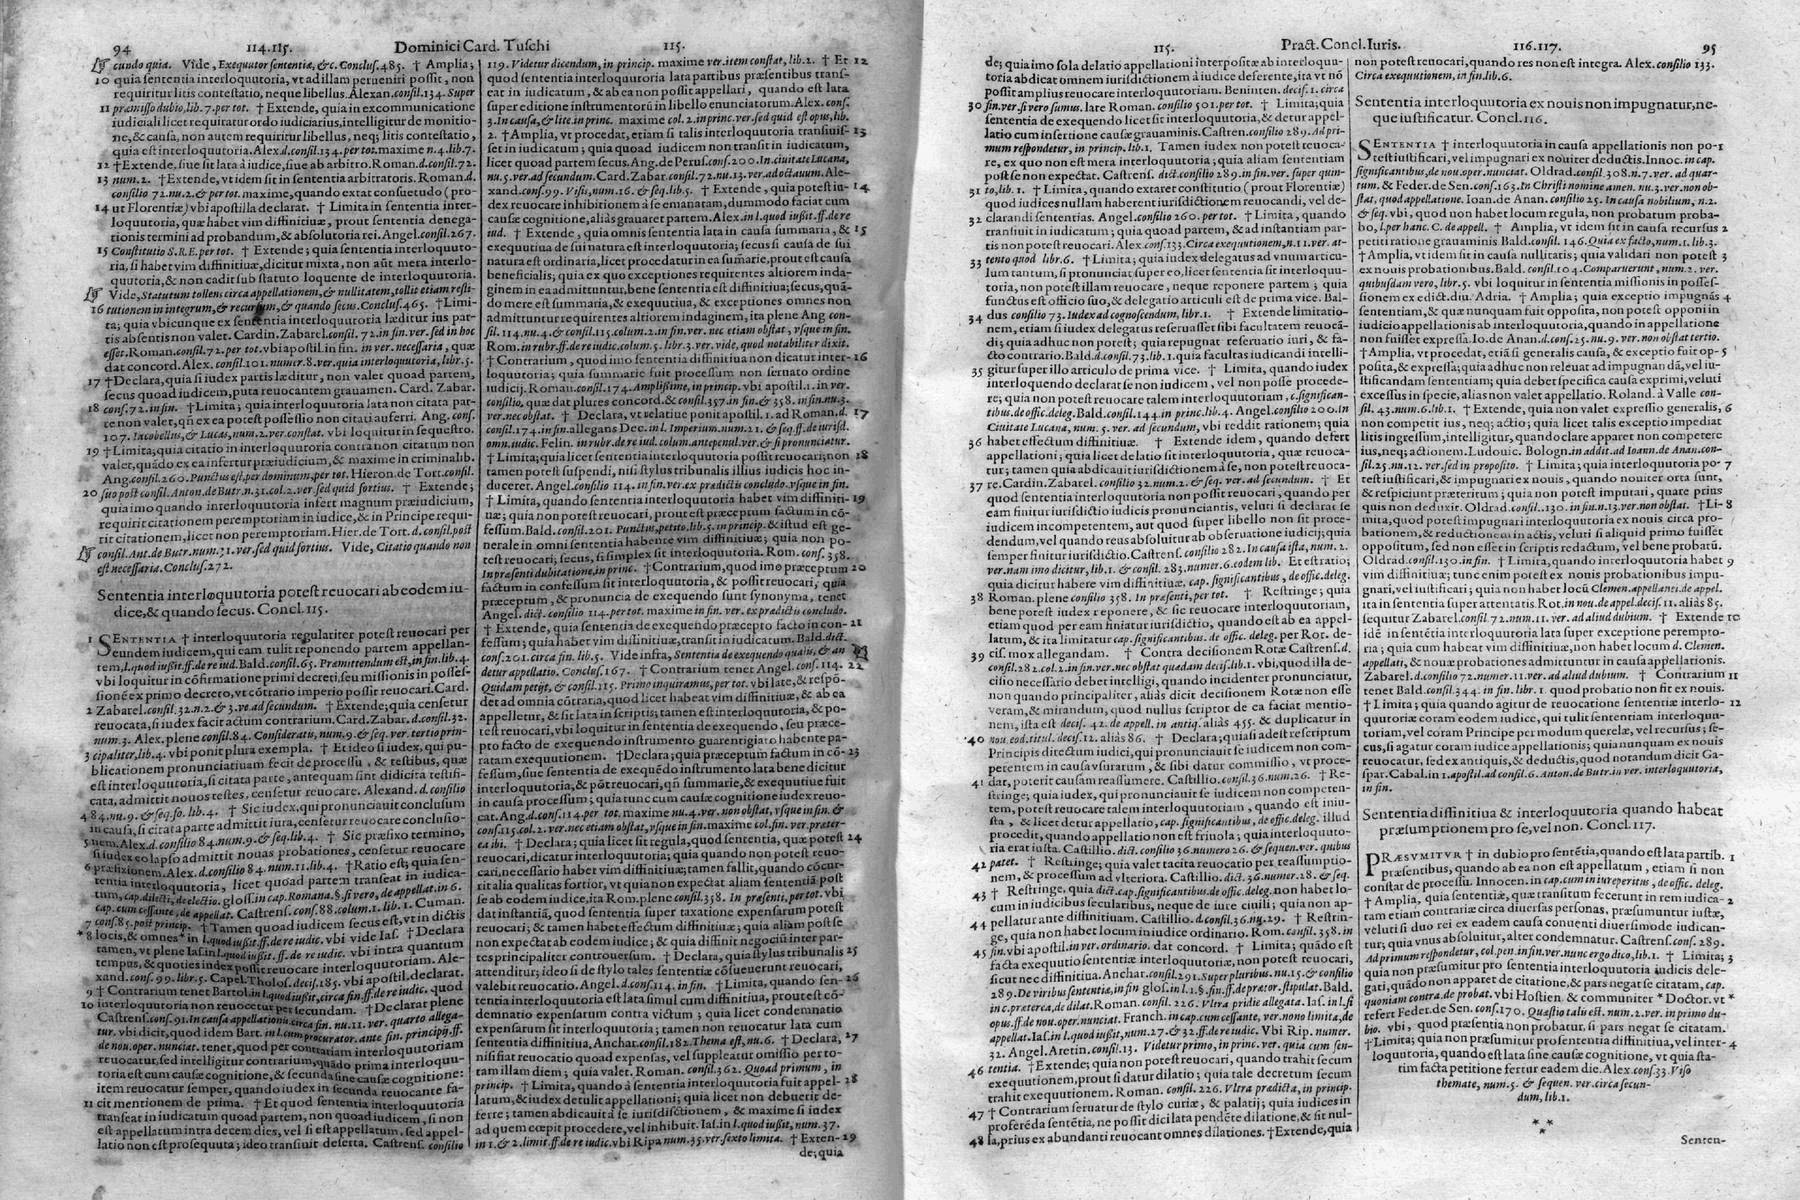 94 114.115. Dominici Card. Tuschi 115.
cundo quia. Vide, Exequutor sententiæ, &c. Conclus. 485. † Amplia;
10 quia sententia interloquutoria, vt ad illam perueniri possit, non
requirit litis contestatio, neque libellus. Alexan. consil. 134. Super
11 præmisso dubio, lib. 7. per tot. † Extende, quia in excommunicatione
iudiciali licet requiratur ordo iudiciarius, intelligitur de monitio-
ne, & causa, non autem requiritur libellus, neq; litis contestatio,
quia est interloquutoria. Alex. d. consil. 134. per tot. maxime n. 4. lib. 7.
12 † Extende, siue sit lata à iudice, siue ab arbitro. Roman. d. consil. 72.
13 num. 2. † Extende, vt idem sit in sententia arbitratoris. Roman. d.
consilio 72. nu. 2. & per tot. maxime, quando extat consuetudo (pro-
14 ut Florentiæ) vbi apostilla declarat. † Limita in sententia inter-
loquutoria, quæ habet vim diffinitiuæ, prout sententia denega-
tionis termini ad probandum, & absolutoria rei. Angel. consil. 267.
15 Constitutio S. R. E. per tot. † Extende; quia sententia interloquuto-
ria, si habet vim diffinitiuæ, dicitur mixta, non aũt mera interlo-
quutoria, & non cadit sub statuto loquente de interloquutoria.
Vide, Statutum tollens circa appellationem, & nullitatem, tollit etiam resti-
16 tutionem in integrum, & recursum, & quando secus. Conclus. 465. † Limi-
ta; quia vbicunque ex sententia interloquutoria læditur ius par-
tis absentis non valet. Cardin. Zabarel. consil. 72. in fin. ver. sed in hoc
esset. Roman. consil. 72. per tot. vbi apostil. in fin. in ver. necessaria, quæ
dat concord. Alex. consil. 101. numer. 8. ver. quia interloquutoria, libr. 5.
17 † Declara, quia si ius partis læditur, non valet quoad partem,
secus quoad iudicem, puta reuocantem grauamen. Card. Zabar.
18 cons. 72. in fin. † Limita; quia interloquutoria lata non citata par-
te non valet, qñ ex ea potest possessio non citati auferri. Ang. cons.
107. Iacobellus, & Lucas, num. 2. ver. constat. vbi loquitur in sequestro.
19 † Limita; quia citatio in interloquutoria contra non citatum non
valet, quãdo ex ea infertur præiudicium, & maxime in criminalib.
Ang. consil. 260. Punctus est, per dominum, per tot. Hieron. de Tort. consil.
20 suo post consil. Anton. de Butr. n. 31. col. 2. ver. sed quid fortius. † Extende;
quia imo quando interloquutoria infert magnum præiudicium,
requirit citationem peremptoriam in iudice, & in Principe requi-
rit citationem, licet non peremptoriam. Hier. de Tort. d. consil. post
consil. Ant. de Butr. num. 31. ver. sed quid fortius. Vide, Citatio quando non
est necessaria. Conclus. 272.
Sententia interloquutoria potest reuocari ab eodem iu-
dice, & quando secus. Concl. 115.
1 SENTENTIA † interloquutoria regulariter potest reuocari per
eundem iudicem, qui eam tulit reponendo partem appellan-
tem, l. quod iussit. ff. de re iud. Bald. consil. 65. Præmittendum est, in fin. lib. 4.
vbi loquitur in cõfirmatione primi decreti, seu missionis in posses-
sionẽ ex primo decreto, vt cõtrario imperio possit reuocari. Card.
2 Zabarel. consil. 32. n. 2. & 3. ve. ad secundum. † Extende; quia censetur
reuocata, si iudex facit actum contrarium. Card. Zabar. d. consil. 32.
num. 3. Alex. plene consil. 84. Consideratis, num. 9. & seq. ver. tertio prin-
3 cipaliter, lib. 4. vbi ponit plura exempla. † Et ideo si iudex, qui pu-
blicationem pronunciatiuam fecit de processu, & testibus, quæ
est interloquutoria, si citata parte, antequam sint didicita testifi-
cata, admittit nouos testes, censetur reuocare. Alexand. d. consilio
4 84. nu. 9. & seq. so. lib. 4. † Sic iudex, qui pronunciauit conclusum
in causa, si citata parte admittit iura, censetur reuocare conclusio-
5 nem. Alex. d. consilio 84. num. 9. & seq. lib. 4. † Sic præfixo termino,
si iudex eo lapso admittit nouas probationes, censetur reuocare
6 præfixionem. Alex. d. consilio 84. num. 11. lib. 4. † Ratio est; quia sen-
tentia interloquutoria, licet quoad partem transeat in iudica-
tum, cap. dilecti, de electio. gloss. in cap. Romana. §. si vero, de appellat. in 6.
cap. cum cessante, de appellat. Castrens. cons. 88. colum. 1. lib. 1. Cuman.
7 cons. 85. post princip. † Tamen quoad iudicem secus est, vt in dictis
*8 locis, & omnes* in l. quod iussit. ff. de re iudic. vbi vide Ias. † Declara
tamen, vt plene Ias. in l. quod iussit. ff. de re iudic. vbi intra quantum
tempus, & quoties iudex possit reuocare interloquutoriam. Ale-
xand. cons. 99. libr. 5. Capel. Tholos. decis. 185. vbi apostil. declarat.
9 † Contrarium tenet Bartol. in l. quod iussit, circa fin. ff. de re iudic. quod
10 interloquutoria non reuocetur per secundam. † Declarat plene
Castrens. cons. 91. In causa appellationis, circa fin. nu. 11. ver. quarto allega-
tur. vbi dicit, quod idem Bart. in l. cum procurator. ante fin. principij. ff.
de nou. oper. nunciat. tenet, quod per contrariam interloquutoriam
reuocatur, sed intelligitur contrarium, quãdo prima interloquu-
toria est cum causæ cognitione, & secunda sine causæ cognitione:
item reuocatur semper, quando iudex in secunda reuocante fa-
11 cit mentionem de prima. † Et quod sententia interloquutoria
transeat in iudicatum quoad partem, non quoad iudicem, si non
est appellatum intra decem dies, vel si est appellatum, sed appel-
latio non est prosequuta; ideo transiuit deserta. Castrens. consilio
119. Videtur dicendum, in princip. maxime ver. item constat, lib. 2. † Et 12
quod sententia interloquutoria lata partibus præsentibus trans-
eat in iudicatum, & ab ea non possit appellari, quando est lata
super editione instrumentorũ in libello enunciatorum. Alex. cons.
3. In causa, & lite in princ. maxime col. 2. in princ. ver. sed quid est opus, lib.
2. † Amplia, vt procedat, etiam si talis interloquutoria transiuis- 13
set in iudicatum; quia quoad iudicem non transit in iudicatum,
licet quoad partem secus. Ang. de Perus. cons. 200. In ciuitate Lucana,
nu. 5. ver. ad secundum. Card. Zabar. consil. 72. nu. 13. ver. ad octauum. Ale-
xand. cons. 99. Visis, num. 16. & seq. lib. 5. † Extende, quia potest iu- 14
dex reuocare inhibitionem à se emanatam, dummodo faciat cum
causæ cognitione, aliàs grauaret partem. Alex. in l. quod iussit. ff. de re
iud. † Extende, quia omnis sententia lata in causa summaria, & 15
exequutiua de sui natura est interloquutoria; secus si causa de sui
natura est ordinaria, licet procedatur in ea sum̃arie, prout est causa
beneficialis; quia ex quo exceptiones requirentes altiorem inda-
ginem in ea admittuntur, bene sententia est diffinitiua; secus, quã-
do mere est summaria, & exequutiua, & exceptiones omnes non
admittuntur requirentes altiorem indaginem, ita plene Ang con-
sil. 114. nu. 4. & consil. 115. colum. 2. in fin. ver. nec etiam obstat, vsque in fin.
Rom. in rubr. ff. de re iudic. colum. 5. libr. 3. ver. vide, quod notabiliter dixit.
† Contrarium, quod imo sententia diffinitiua non dicatur inter- 16
loquutoria; quia summarie fuit processum non seruato ordine
iudicij. Roman. consil. 174. Amplissime, in princip. vbi apostil. 1. in ver.
consilio, quæ dat plures concord. & consil. 357. in fin. & 358. in fin. nu. 3.
ver. nec obstat. † Declara, vt relatiue ponit apostil. 1. ad Roman. d. 17
consil. 174. in fin. allegans Dec. in l. Imperium. num. 21. & seq. ff. de iurisd.
omn. iudic. Felin. in rubr. de re iud. colum. antepenul. ver. & si pronunciatur.
† Limita; quia licet sententia interloquutoria possit reuocari; non 18
tamen potest suspendi, nisi stylus tribunalis illius iudicis hoc in-
duceret. Angel. consilio 114. in fin. ver. ex prædictis concludo. vsque in fin.
† Limita, quando sententia interloquutoria habet vim diffiniti- 19
uæ; quia non potest reuocari, prout est præceptum factum in cõ-
fessum. Bald. consil. 201. Punctus, petito, lib. 5. in princip. & istud est ge-
nerale in omni sententia habente vim diffinitiuæ; quia non po-
test reuocari; secus, si simplex sit interloquutoria. Rom. cons. 358.
In præsenti dubitatione, in princ. † Contrarium, quod imo præceptum 20
factum in confessum sit interloquutoria, & possit reuocari, quia
præceptum, & pronuncia de exequendo sunt synonyma, tenet
Angel. dict. consilio 114. per tot. maxime in fin. ver. ex prædictis concludo.
† Extende, quia sententia de exequendo præcepto facto in con- 21
fessum; quia habet vim diffinitiuæ, transit in iudicatum. Bald. dict.
cons. 201. circa fin. lib. 5. Vide infra, Sententia de exequendo qualis, & an
detur appellatio. Conclus. 167. † Contrarium tenet Angel. cons. 114. 22
Quidam petijt, & consil. 115. Primo inquiramus, per tot. vbi late, & respõ-
det ad omnia cõtraria, quod licet habeat vim diffinitiuæ, & ab ea
appelletur, & sit lata in scriptis; tamen est interloquutoria, & po-
test reuocari, vbi loquitur in sententia de exequendo, seu præce-
pto facto de exequendo instrumento guarentigiato habente pa-
ratam exequutionem. † Declara; quia præceptum factum in cõ- 23
fessum, siue sententia de exequẽdo instrumento lata bene dicitur
interloquutoria, & põt reuocari, qñ summarie, & exequutiue fuit
in causa processum; quia tunc cum causæ cognitione iudex reuo-
cat. Ang. d. cons. 114. per tot. maxime nu. 4. ver. non obstat, vsque in fin. &
cons. 115. col. 2. ver. nec etiam obstat, vsque in fin. maxime col. fin. ver. præter-
ea ibi. † Declara; quia licet sit regula, quod sententia, quæ potest 24
reuocari, dicatur interloquutoria; quia quando non potest reuo-
cari, necessario habet vim diffinitiuæ; tamen fallit, quando cõcur-
rit alia qualitas fortior, vt quia non expectat aliam sententiã post
se ab eodem iudice, ita Rom. plene consil. 358. In præsenti, per tot. vbi
dat instantiã, quod sententia super taxatione expensarum potest
reuocari; & tamen habet effectum diffinitiuæ; quia aliam post se
non expectat ab eodem iudice; & quia diffinit negociũ inter par-
tes principaliter controuersum. † Declara, quia stylus tribunalis 25
attenditur; ideo si de stylo tales sententiæ cõsueuerunt reuocari,
valebit reuocatio. Angel. d. cons. 114. in fin. † Limita, quando sen- 26
tentia interloquutoria est lata simul cum diffinitiua, prout est cõ-
demnatio expensarum contra victum; quia licet condemnatio
expensarum sit interloquutoria; tamen non reuocatur lata cum
sententia diffinitiua, Anchar. consil. 182. Thema est, nu. 6. † Declara, 27
nisi fiat reuocatio quoad expensas, vel suppleatur omissio per to-
tam illam diem; quia valet. Roman. consil. 362. Quoad primum, in
princip. † Limita, quando à sententia interloquutoria fuit appel- 28
latum, & iudex detulit appellationi; quia licet non debuerit de-
ferre; tamen abdicauit à se iurisdictionem, & maxime si iudex
ad quem cœpit procedere, vel inhibuit. Ias. in l. quod iussit, num. 37.
in 1. & 2. limit. ff. de re iudic. vbi Ripa num. 35. ver. sexto limita. † Exten- 29
de; quia
115. Pract. Concl. Iuris. 116.117. 95
de; quia imo sola delatio appellationi interpositæ ab interloquu-
toria abdicat omnem iurisdictionem à iudice deferente, ita vt nõ
possit amplius reuocare interloquutoriam. Beninten. decis. 1. circa
30 fin. ver. si vero sumus. late Roman. consilio 501. per tot. † Limita; quia
sententia de exequendo licet sit interloquutoria, & detur appel-
latio cum insertione causæ grauaminis. Castren. consilio 289. Ad pri-
mum respondetur, in princip. lib. 1. Tamen iudex non potest reuoca-
re, ex quo non est mera interloquutoria; quia aliam sententiam
post se non expectat. Castrens. dict. consilio 289. in fin. ver. super quin-
31 to, lib. 1. † Limita, quando extaret constitutio (prout Florentiæ)
quod iudices nullam haberent iurisdictionem reuocandi, vel de-
32 clarandi sententias. Angel. consilio 260. per tot. † Limita, quando
transiuit in iudicatum; quia quoad partem, & ad instantiam par-
tis non potest reuocari. Alex. cons. 133. Circa exequutionem, n. 11. ver. at-
33 tento quod libr. 6. † Limita; quia iudex delegatus ad vnum articu-
lum tantum, si pronunciat super eo, licet sententia sit interloquu-
toria, non potest illam reuocare, neque reponere partem; quia
functus est officio suo, & delegatio articuli est de prima vice. Bal-
34 dus consilio 73. Iudex ad cognoscendum, libr. 1. † Extende limitatio-
nem, etiam si iudex delegatus reseruasset sibi facultatem reuocã-
di; quia adhuc non potest; quia repugnat reseruatio iuri, & fa-
cto contrario. Bald. d. cons. 73. lib. 1. quia facultas iudicandi intelli-
35 gitur super illo articulo de prima vice. † Limita, quando iudex
interloquendo declarat se non iudicem, vel non posse procede-
re; quia non potest reuocare talem interloquutoriam, c. significan-
tibus. de offic. deleg. Bald. cons. 144 in princ. lib. 4. Angel. consilio 200. In
Ciuitate Lucana, num. 5. ver. ad secundum, vbi reddit rationem; quia
36 habet effectum diffinitiuæ. † Extende idem, quando defert
appellationi; quia licet delatio sit interloquutoria, quæ reuoca-
tur; tamen quia abdicauit iurisdictionem à se, non potest reuoca-
37 re. Cardin. Zabarel. consilio 32. num. 2. & seq. ver. ad secundum. † Et
quod sententia interloquutoria non possit reuocari, quando per
eam finitur iurisdictio iudicis pronunciantis, veluti si declarat se
iudicem incompetentem, aut quod super libello non sit proce-
dendum, vel quando reus absoluitur ab obseruatione iudicij; quia
semper finitur iurisdictio. Castrens. consilio 282. In causa ista, num. 2.
ver. nam imo dicitur, lib. 1. & consil. 283. numer. 6. eodem lib. Et est ratio;
quia dicitur habere vim diffinitiuæ, cap. significantibus, de offic. deleg.
38 Roman. plene consilio 358. In præsenti, per tot. † Restringe; quia
bene potest iudex reponere, & sic reuocare interloquutoriam,
etiam quod per eam finiatur iurisdictio, quando est ab ea appel-
latum, & ita limitatur cap. significantibus. de offic. deleg. per Rot. de-
39 cis. mox allegandam. † Contra decisionem Rotæ Castrens. d.
consil. 282. col. 2. in fin. ver. nec obstat quadam decis. lib. 1. vbi, quod illa de-
cisio necessario debet intelligi, quando incidenter pronunciatur,
non quando principaliter, aliàs dicit decisionem Rotæ non esse
veram, & mirandum, quod nullus scriptor de ea faciat mentio-
nem, ista est decis. 42. de appell. in antiq. aliàs 455. & duplicatur in
40 nou. eod. titul. decis. 12. aliàs 86. † Declara; quasi ad est rescriptum
Principis directum iudici, qui pronunciauit se iudicem non com-
petentem in causa vsurarum, & sibi datur commissio, vt proce-
41 dat, poterit causam reassumere. Castillio. cons. 36. num. 26. † Re-
stringe; quia iudex, qui pronunciauit se iudicem non competen-
tem, potest reuocare talem interloquutoriam, quando est iniu-
sta, & licet detur appellatio, cap. significantibus, de offic. deleg. illud
procedit, quando appellatio non est friuola; quia interloquuto-
ria erat iusta. Castillio. dict. consilio 36. numero 26. & sequen. ver. quibus
42 patet. † Restringe; quia valet tacita reuocatio per reassumptio-
nem, & processum ad vlteriora. Castillio. dict. 36. numer. 28. & seq.
43 † Restringe, quia dict. cap. significantibus. de offic. deleg. non habet lo-
cum in iudicibus secularibus, neque de iure ciuili; quia non ap-
pellatur ante diffinitiuam. Castillio. d. cons. 36. nu. 29. † Restrin-
44 ge, quia non habet locum in iudice ordinario. Rom. cons. 358. in
45 fin. vbi apostil. in ver. ordinario. dat concord. † Limita; quãdo est
facta exequutio sententiæ interloquutoriæ, non potest reuocari,
sicut nec diffinitiua. Anchar. consil. 291. Super pluribus. nu. 15. & consilio
289. De viribus sententiæ, in fin glos. in l. 1. §. fin. ff. de prætor. stipulat. Bald.
in c. præterea, de dilat. Roman. consil. 226. Vltra pridie allegata. Ias. in l. si
opus. ff. de nou. oper. nunciat. Franch. in cap. cum cessante, ver. nono limita, de
appellat. Ias. in l. quod iussit, num. 27. & 32. ff. de re iudic. Vbi Rip. numer.
32. Angel. Aretin. consil. 13. Videtur primo, in princ. ver. quia cum sen-
46 tentia. † Extende; quia non potest reuocari, quando trahit secum
exequutionem, prout si datur dilatio; quia tale decretum secum
trahit exequutionem. Roman. consil. 226. Vltra prædicta, in princip.
47 † Contrarium seruatur de stylo curiæ, & palatij; quia iudices in
proferẽda sentẽtia, ne possit dici lata pendẽte dilatione, & sit nul-
48 la, prius ex abundanti reuocant omnes dilationes. † Extende, quia
non potest reuocari, quando res non est integra. Alex. consilio 133.
Circa exequutionem, in fin lib. 6.
Sententia interloquutoria ex nouis non impugnatur, ne-
que iustificatur. Concl. 116.
SENTENTIA † interloquutoria in causa appellationis non po- 1
test iustificari, vel impugnari ex nouiter deductis. Innoc. in cap.
significantibus, de nou. oper. nunciat. Oldrad. consil. 308. n. 7. ver. ad quar-
tum. & Feder. de Sen. cons. 163. In Christi nomine amen. nu. 3. ver. non ob-
stat, quod appellatione. Ioan. de Anan. consilio 25. In causa nobilium, n. 2.
& seq. vbi, quod non habet locum regula, non probatum proba-
bo, l. per hanc. C. de appell. † Amplia, vt idem sit in causa recursus 2
petiti ratione grauaminis Bald. consil. 146. Quia ex facto, num. 1. lib. 3.
† Amplia, vt idem sit in causa nullitatis; quia validari non potest 3
ex nouis probationibus. Bald. consil. 104. Comparuerunt, num. 2. ver.
quibusdam vero, lib. 5. vbi loquitur in sententia missionis in posses-
sionem ex edict. diu. Adria. † Amplia; quia exceptio impugnãs 4
sententiam, & quæ nunquam fuit opposita, non potest opponi in
iudicio appellationis ab interloquutoria, quando in appellatione
non fuisset expressa. Io. de Anan. d. cons. 25. nu. 9. ver. non obstat tertio.
† Amplia, vt procedat, etiã si generalis causa, & exceptio fuit op- 5
posita, & expressa; quia adhuc non releuat ad impugnandã, vel iu-
stificandam sententiam; quia debet specifica causa exprimi, veluti
excessus in specie, alias non valet appellatio. Roland. à Valle con-
sil. 43. num. 6. lib. 1. † Extende, quia non valet expressio generalis, 6
non competit ius, neq; actio; quia licet talis exceptio impediat
litis ingressum, intelligitur, quando clare apparet non competere
ius, neq; actionem. Ludouic. Bologn. in addit. ad Ioann. de Anan. con-
sil. 25. nu. 12. ver. sed in proposito. † Limita; quia interloquutoria po- 7
test iustificari, & impugnari ex nouis, quando nouiter orta sunt,
& respiciunt præteritum; quia non potest imputari, quare prius
quis non deduxit. Oldrad. consil. 130. in fin. n. 13. ver. non obstat. † Li- 8
mita, quod potest impugnari interloquutoria ex nouis circa pro-
bationem, & reductionem in actis, veluti si aliquid primo fuisset
oppositum, sed non esset in scriptis redactum, vel bene probatũ.
Oldrad. consil. 130. in fin. † Limita, quando interloquutoria habet 9
vim diffinitiuæ; tunc enim potest ex nouis probationibus impu-
gnari, vel iustificari; quia non habet locũ Clemen. appellanei. de appel.
ita in sententia super attentatis. Rot. in nou. de appel. decis. 11. aliàs 85.
sequitur Zabarel. consil. 72. num. 11. ver. ad aliud dubium. † Extende 10
idẽ in sentẽtia interloquutoria lata super exceptione perempto-
ria; quia cum habeat vim diffinitiuæ, non habet locum d. Clemen.
appellanti, & nouæ probationes admittuntur in causa appellationis.
Zabarel. d. consilio 72. numero 11. ver. ad aliud dubium. † Contrarium 11
tenet Bald. cons. 344. in fin. libr. 1. quod probatio non fit ex nouis.
† Limita; quia quando agitur de reuocatione sententiæ interlo- 12
quutoriæ coram eodem iudice, qui tulit sententiam interloquu-
toriam, vel coram Principe per modum querelæ, vel recursus; se-
cus, si agatur coram iudice appellationis; quia nunquam ex nouis
reuocatur, sed ex antiquis, & deductis, quod notandum dicit Ga-
spar. Cabal. in 1. apostil. ad consil. 6. Anton. de Butr. in ver. interloquutoria,
in fin.
Sententia diffinitiua & interloquutoria quando habeat
præsumptionem pro se, vel non. Concl. 117.
PRÆSVMITVR † in dubio pro sentẽtia, quando est lata partib. 1
præsentibus, quando ab ea non est appellatum, etiam si non
constat de processu. Innocen. in cap. cum in iure peritus, de offic. deleg.
† Amplia, quia sententiæ, quæ transitum fecerunt in rem iudica- 2
tam etiam contrariæ circa diuersas personas, præsumuntur iustæ,
veluti si duo rei ex eadem causa conuenti diuersimode iudican-
tur; quia vnus absoluitur, alter condemnatur. Castrens. cons. 289.
Ad primum respondetur, col. pen. in fin. ver. nunc ergo dico, lib. 1. † Limita; 3
quia non præsumitur pro sententia interloquutoria iudicis dele-
gati, quãdo non apparet de citatione, & pars negat se citatam, cap.
quoniam contra. de probat. vbi Hostien. & communiter * Doctor. vt *
refert Feder. de Sen. cons. 170. Quæstio talis est. num. 2. ver. in primo du-
bio. vbi, quod præsentia non probatur, si pars negat se citatam.
† Limita; quia non præsumitur pro sententia diffinitiua, vel inter- 4
loquutoria, quando est lata sine causæ cognitione, vt quia sta-
tim facta petitione fertur eadem die. Alex. cons. 33. Viso
themate, num. 5. & sequen. ver. circa secun-
dum, lib. 1.
Senten-